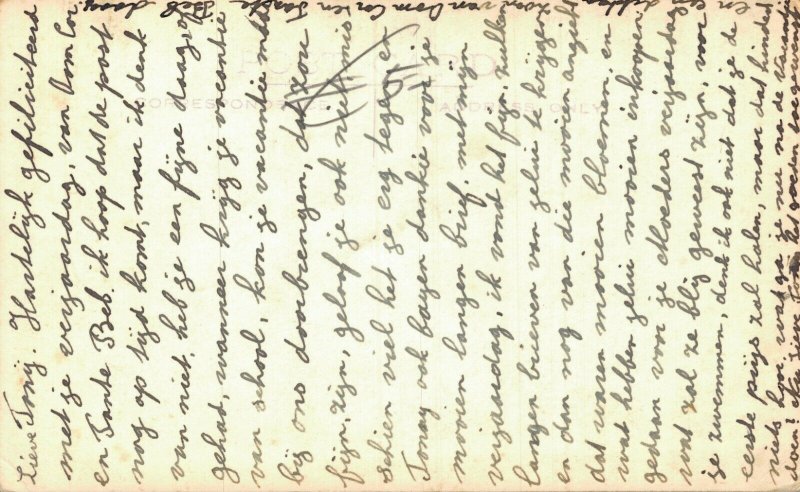 Lieve Tony. Hartelijk gefiliciteerd
met je verjaardag, van Oom Cor
en Tante Beb. ik hoop dat de post
nog op tijd komt, maar ik denk
van niet, heb je een fijne dag
gehad, wanneer krijg je vacantie
van school, kon je vacantie maar
bij ons doorbrengen, dat zou
fijn, zijn, geloof je ook niet mis
schien viel het je erg tegen, en
Tonny ook bayen dankie voor je
mooien langen brief, met mijn
verjaardag, ik vond het fijn zulke
langen brieven van jelui te krijgen
en dan nog van die mooien angie
dat waren mooien bloemen, en
wat hebben jelui mooien inkoopen
gedaan voor je Moeders verjaardag
wat zal ze blij geweest zijn, voor
je zwemmen, denk ik ook niet dat je de
eerste prijs zal halen, maar dat hindert
niets hoor, wat ga je nu na de vacantie
doen? Nu lieve Tony het goeden toegewenscht
en een dikken zoen van Oom Cor en Tante Beb
daag.
POST CARD
CORRESPONDENCE
ADDRESS ONLY